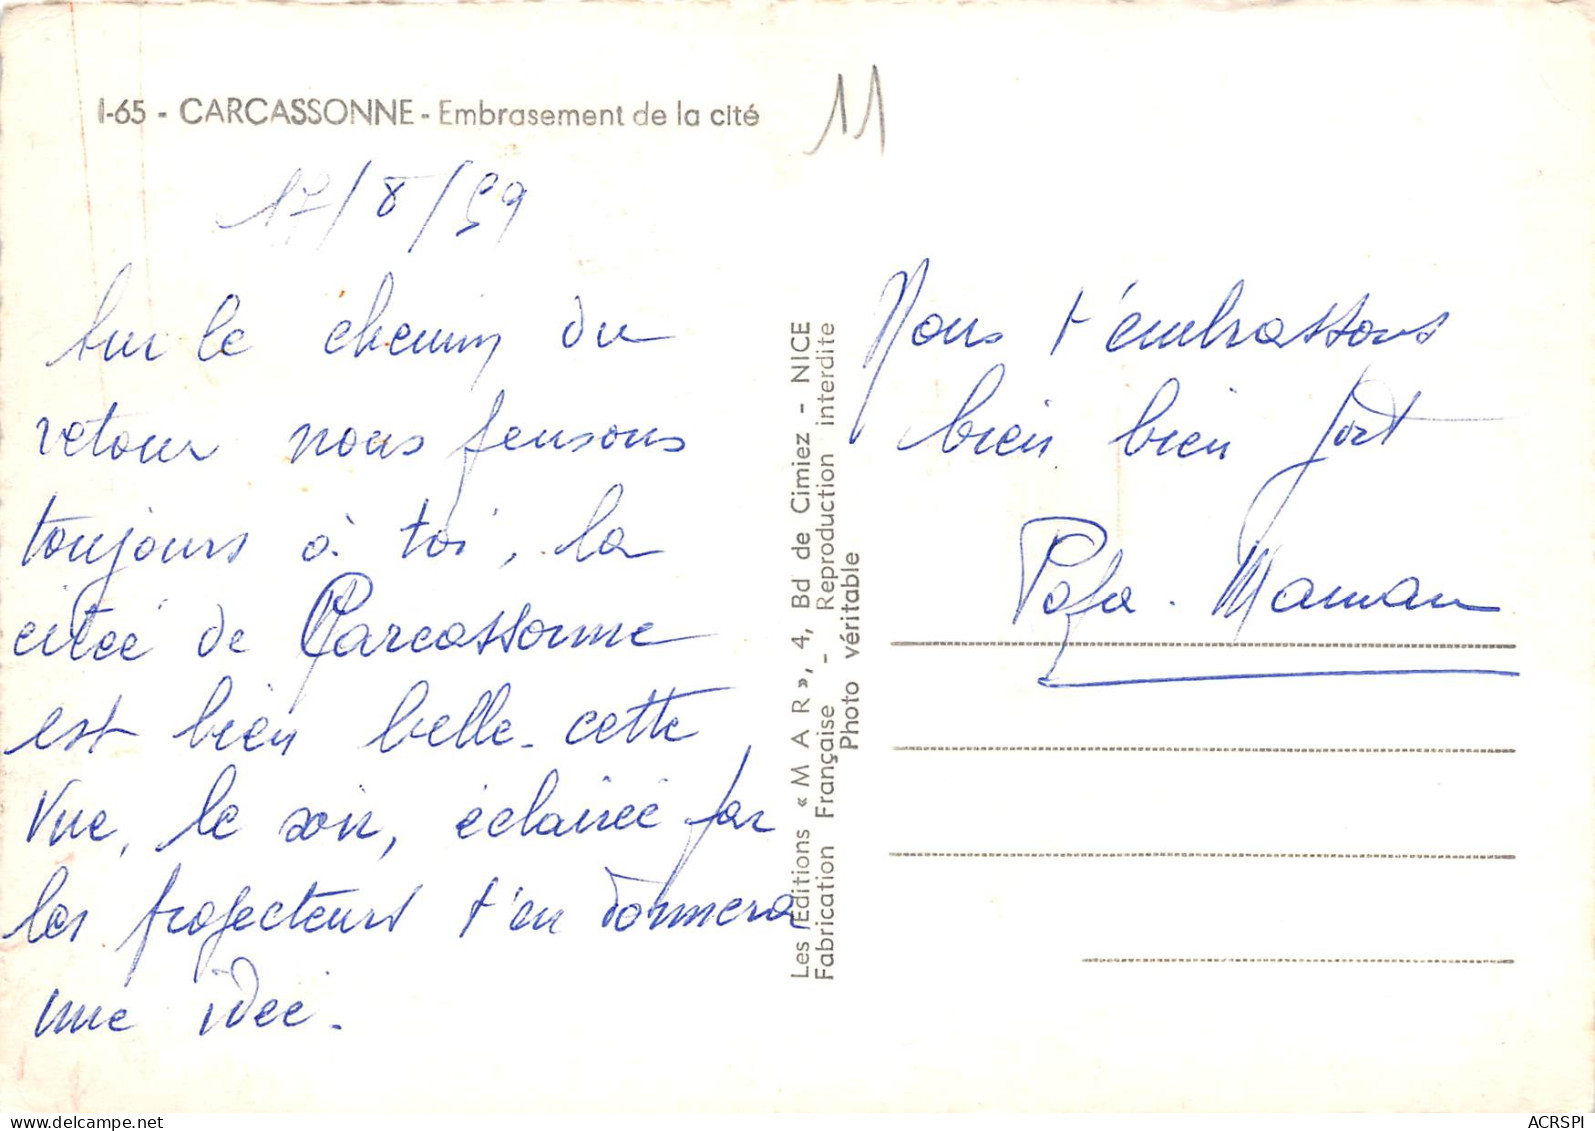 I-65 - CARCASSONNE - Embrasement de la cité
11
17/8/59
Sur le chemin du
retour nous pensons
toujours à toi, la
citée de Carcassonne
est bien belle. cette
vue, le soir, éclairée par
les projecteurs t'en donnera
une idée.
Les Editions « M A R », 4, Bd de Cimiez - NICE
Fabrication Française - Reproduction interdite
Photo véritable
Nous t'embrassons
bien bien fort
Papa. Maman
delcampe.net
ACRSPI